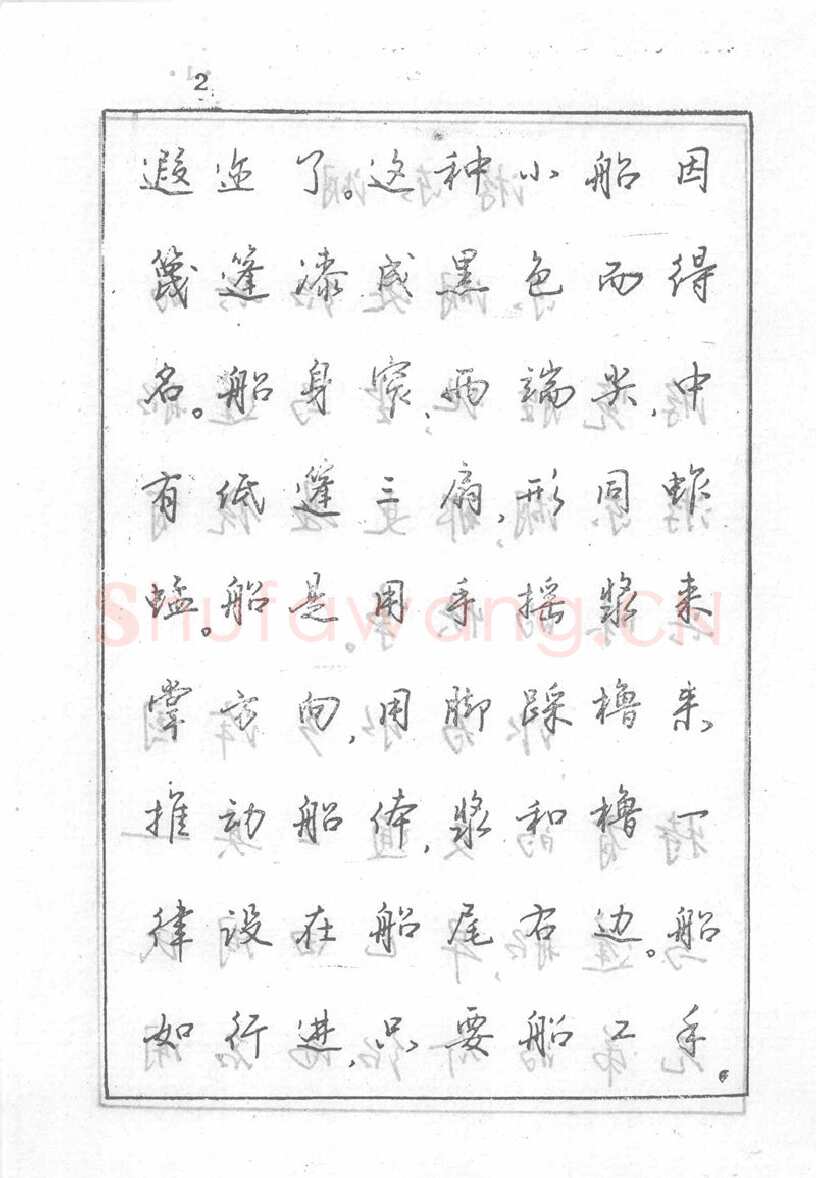 2
遐迩了。这种小船因
篾篷漆成黑色而得
名。船身窄,两端尖,中
有低篷三扇,形同蚱
蜢。船是用手摇桨来
掌方向,用脚踩橹来
推动船体,桨和橹一
律设在船尾右边。船
如行进,只要船工手
Shufawang.CN
6